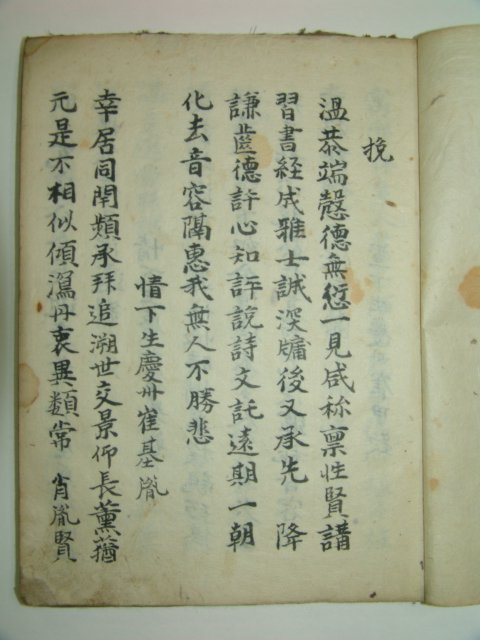 挽
溫恭端慤德無愆一見咸称禀性賢講
習書経成雅士誠深牖後又承先降
謙匿德許心知評說詩文託遠期一朝
化去音容隔惠我無人不勝悲
情下生慶州崔基胤
幸居同閈頻承拜追溯世交景仰長薰蕕
元是不相似傾瀉丹衷異類常 肖胤賢